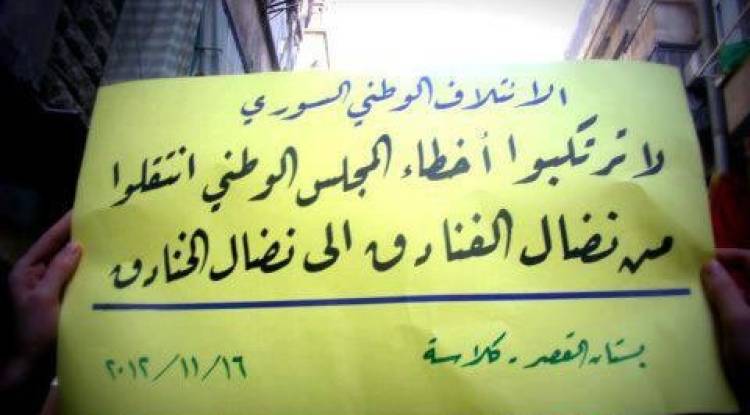 الائتلاف الوطني السوري
لا ترتكبوا أخطاء المجلس الوطني انتقلوا
من نضال الفنادق الى نضال الخنادق
بستان القصر - كلاسة
٢٠١٢/١١/١٦